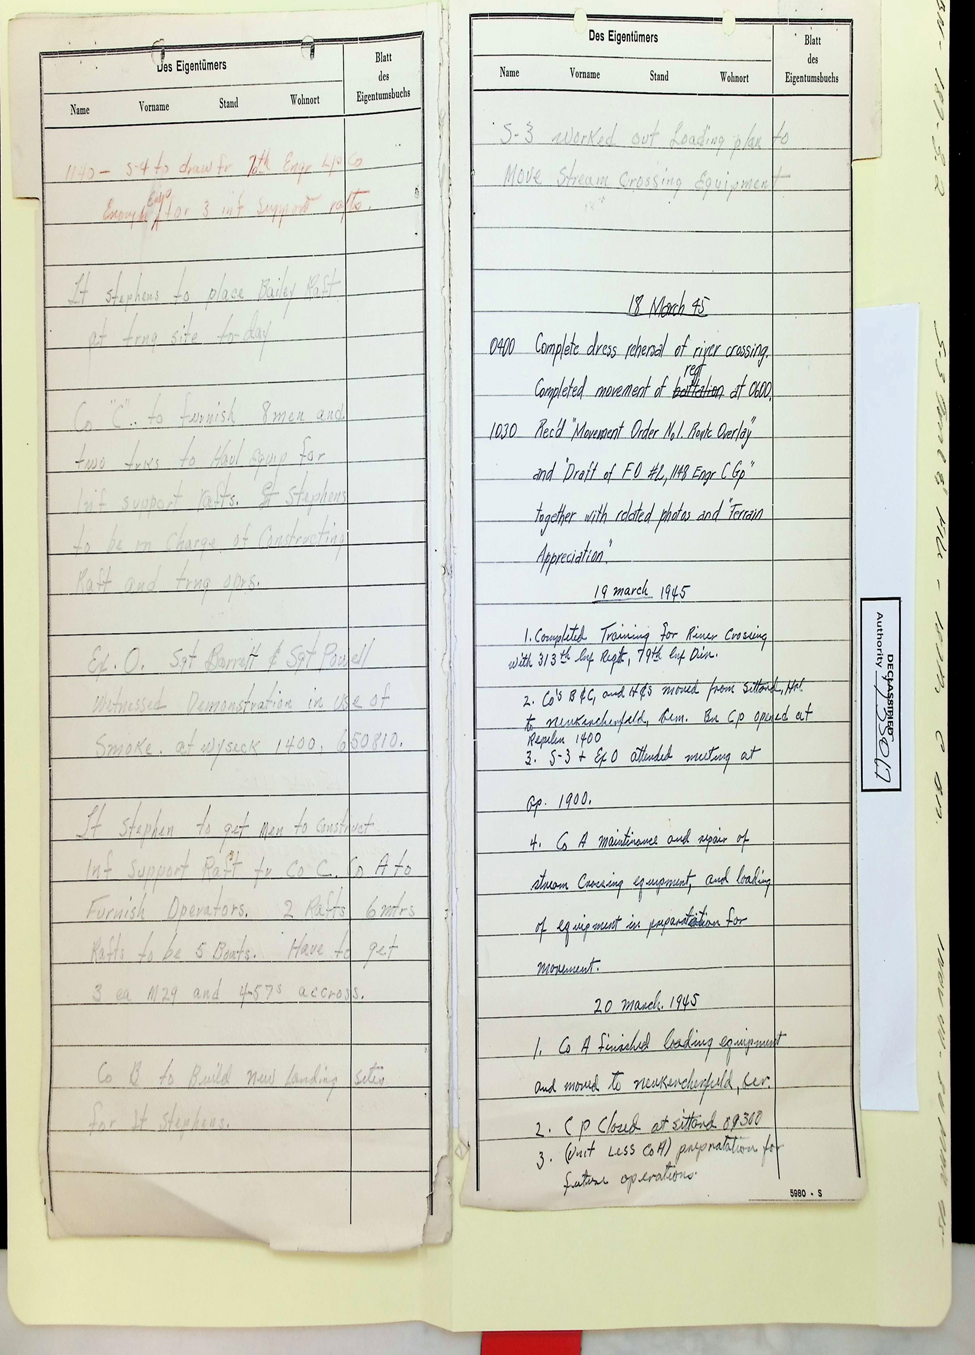 Des Eigentümers
Blatt
des
Eigentumsbuchs
Name Vorname Stand Wohnort
1140 - S-4 to draw fr 70th Engr Lt Co
Enough Eqp for 3 inf Support rafts.
Lt Stephens to place Bailey Raft
at trng site to-day
Co "C" to furnish 8 men and
two trks to Haul Equip for
Inf support Rafts. Lt Stephens
to be in Charge of Constructing
Raft and trng oprs.
Ex. O. Sgt Barrett & Sgt Powell
Witnessed Demonstration in use of
Smoke. at Wyseck 1400. 650810.
Lt Stephen to get Men to construct
Inf Support Raft fr Co C. Co A to
Furnish Operators. 2 Rafts 6 mtrs
Rafts to be 5 Boats. Have to get
3 ea M29 and 4-57s accross.
Co B to Build new landing sites
for Lt Stephens.
Des Eigentümers
Blatt
des
Eigentumsbuchs
Name Vorname Stand Wohnort
S-3 worked out Loading plan to
Move Stream Crossing Equipment
18 March 45
0400 Complete dress rehersal of river crossing.
reg
Completed movement of battalion at 0600.
1030 Rec'd "Movement Order No 1. Route Overlay"
and "Draft of FO #2, 1148 Engr C Gp"
together with related photos and "Terrain
Appreciation".
19 march 1945
1. Completed Training for River Crossing
with 313th Inf Regt, 79th Inf Div.
2. Co's B & C, and H&S moved from Sittard, Hol
to neukercherfeld, Ger. Bn Cp opened at
Repelen 1400
3. S-3 + Ex O attended meeting at
Gp. 1900.
4. Co A maintinance and repair of
stream Crossing equipment, and loading
of equipment in preparatation for
movement.
20 march. 1945
1. Co A finished loading equipment
and moved to neukercherfeld, Ger.
2. C P Closed at sittard 0930
3. (Unit Less Co A) prepratation for
future operations.
5980 - S
DECLASSIFIED
Authority 735017